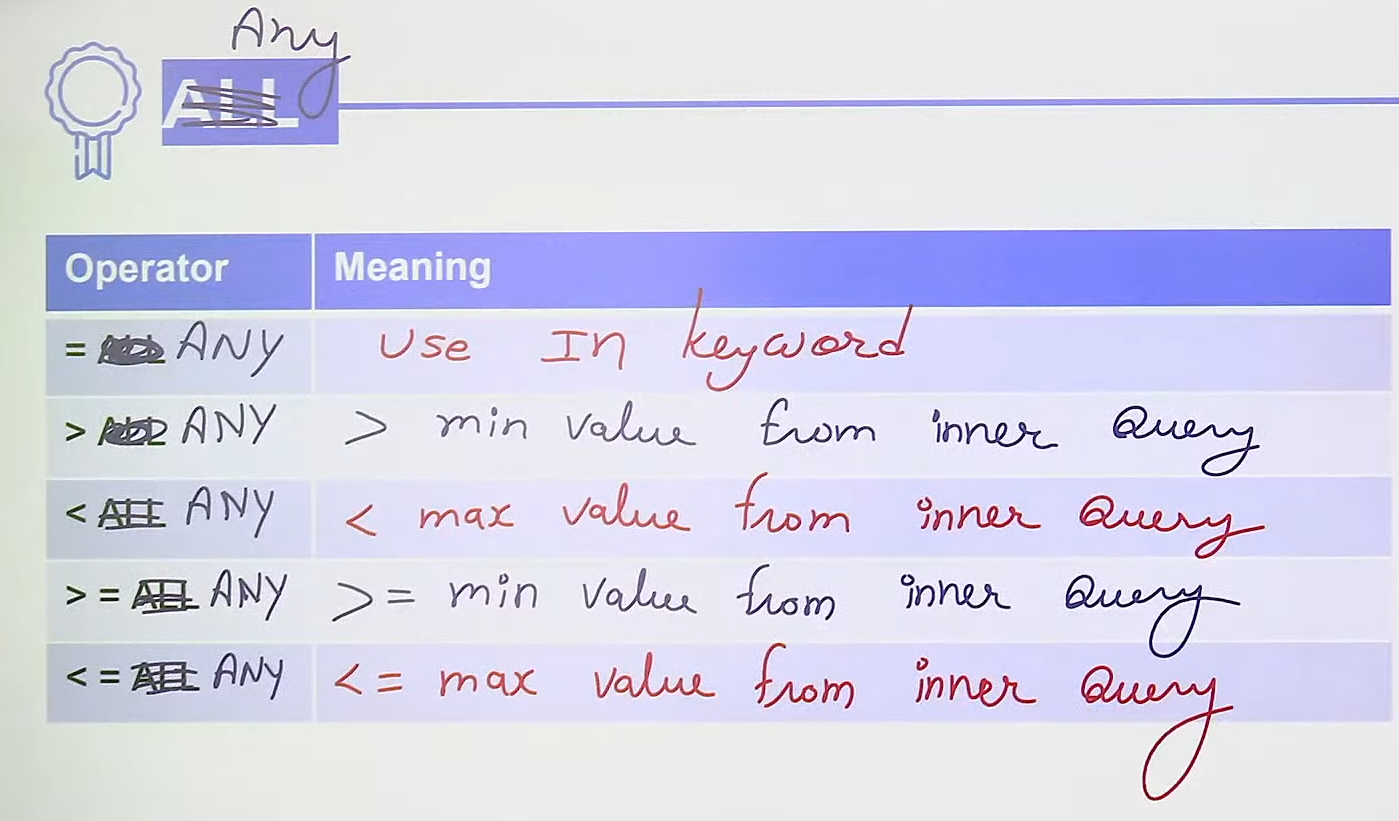 Any
ALL
Operator Meaning
= ANY Use In keyword
> ANY > min value from inner Query
< ALL ANY < max value from inner Query
>= ALL ANY >= min value from inner Query
<= ALL ANY <= max value from inner Query